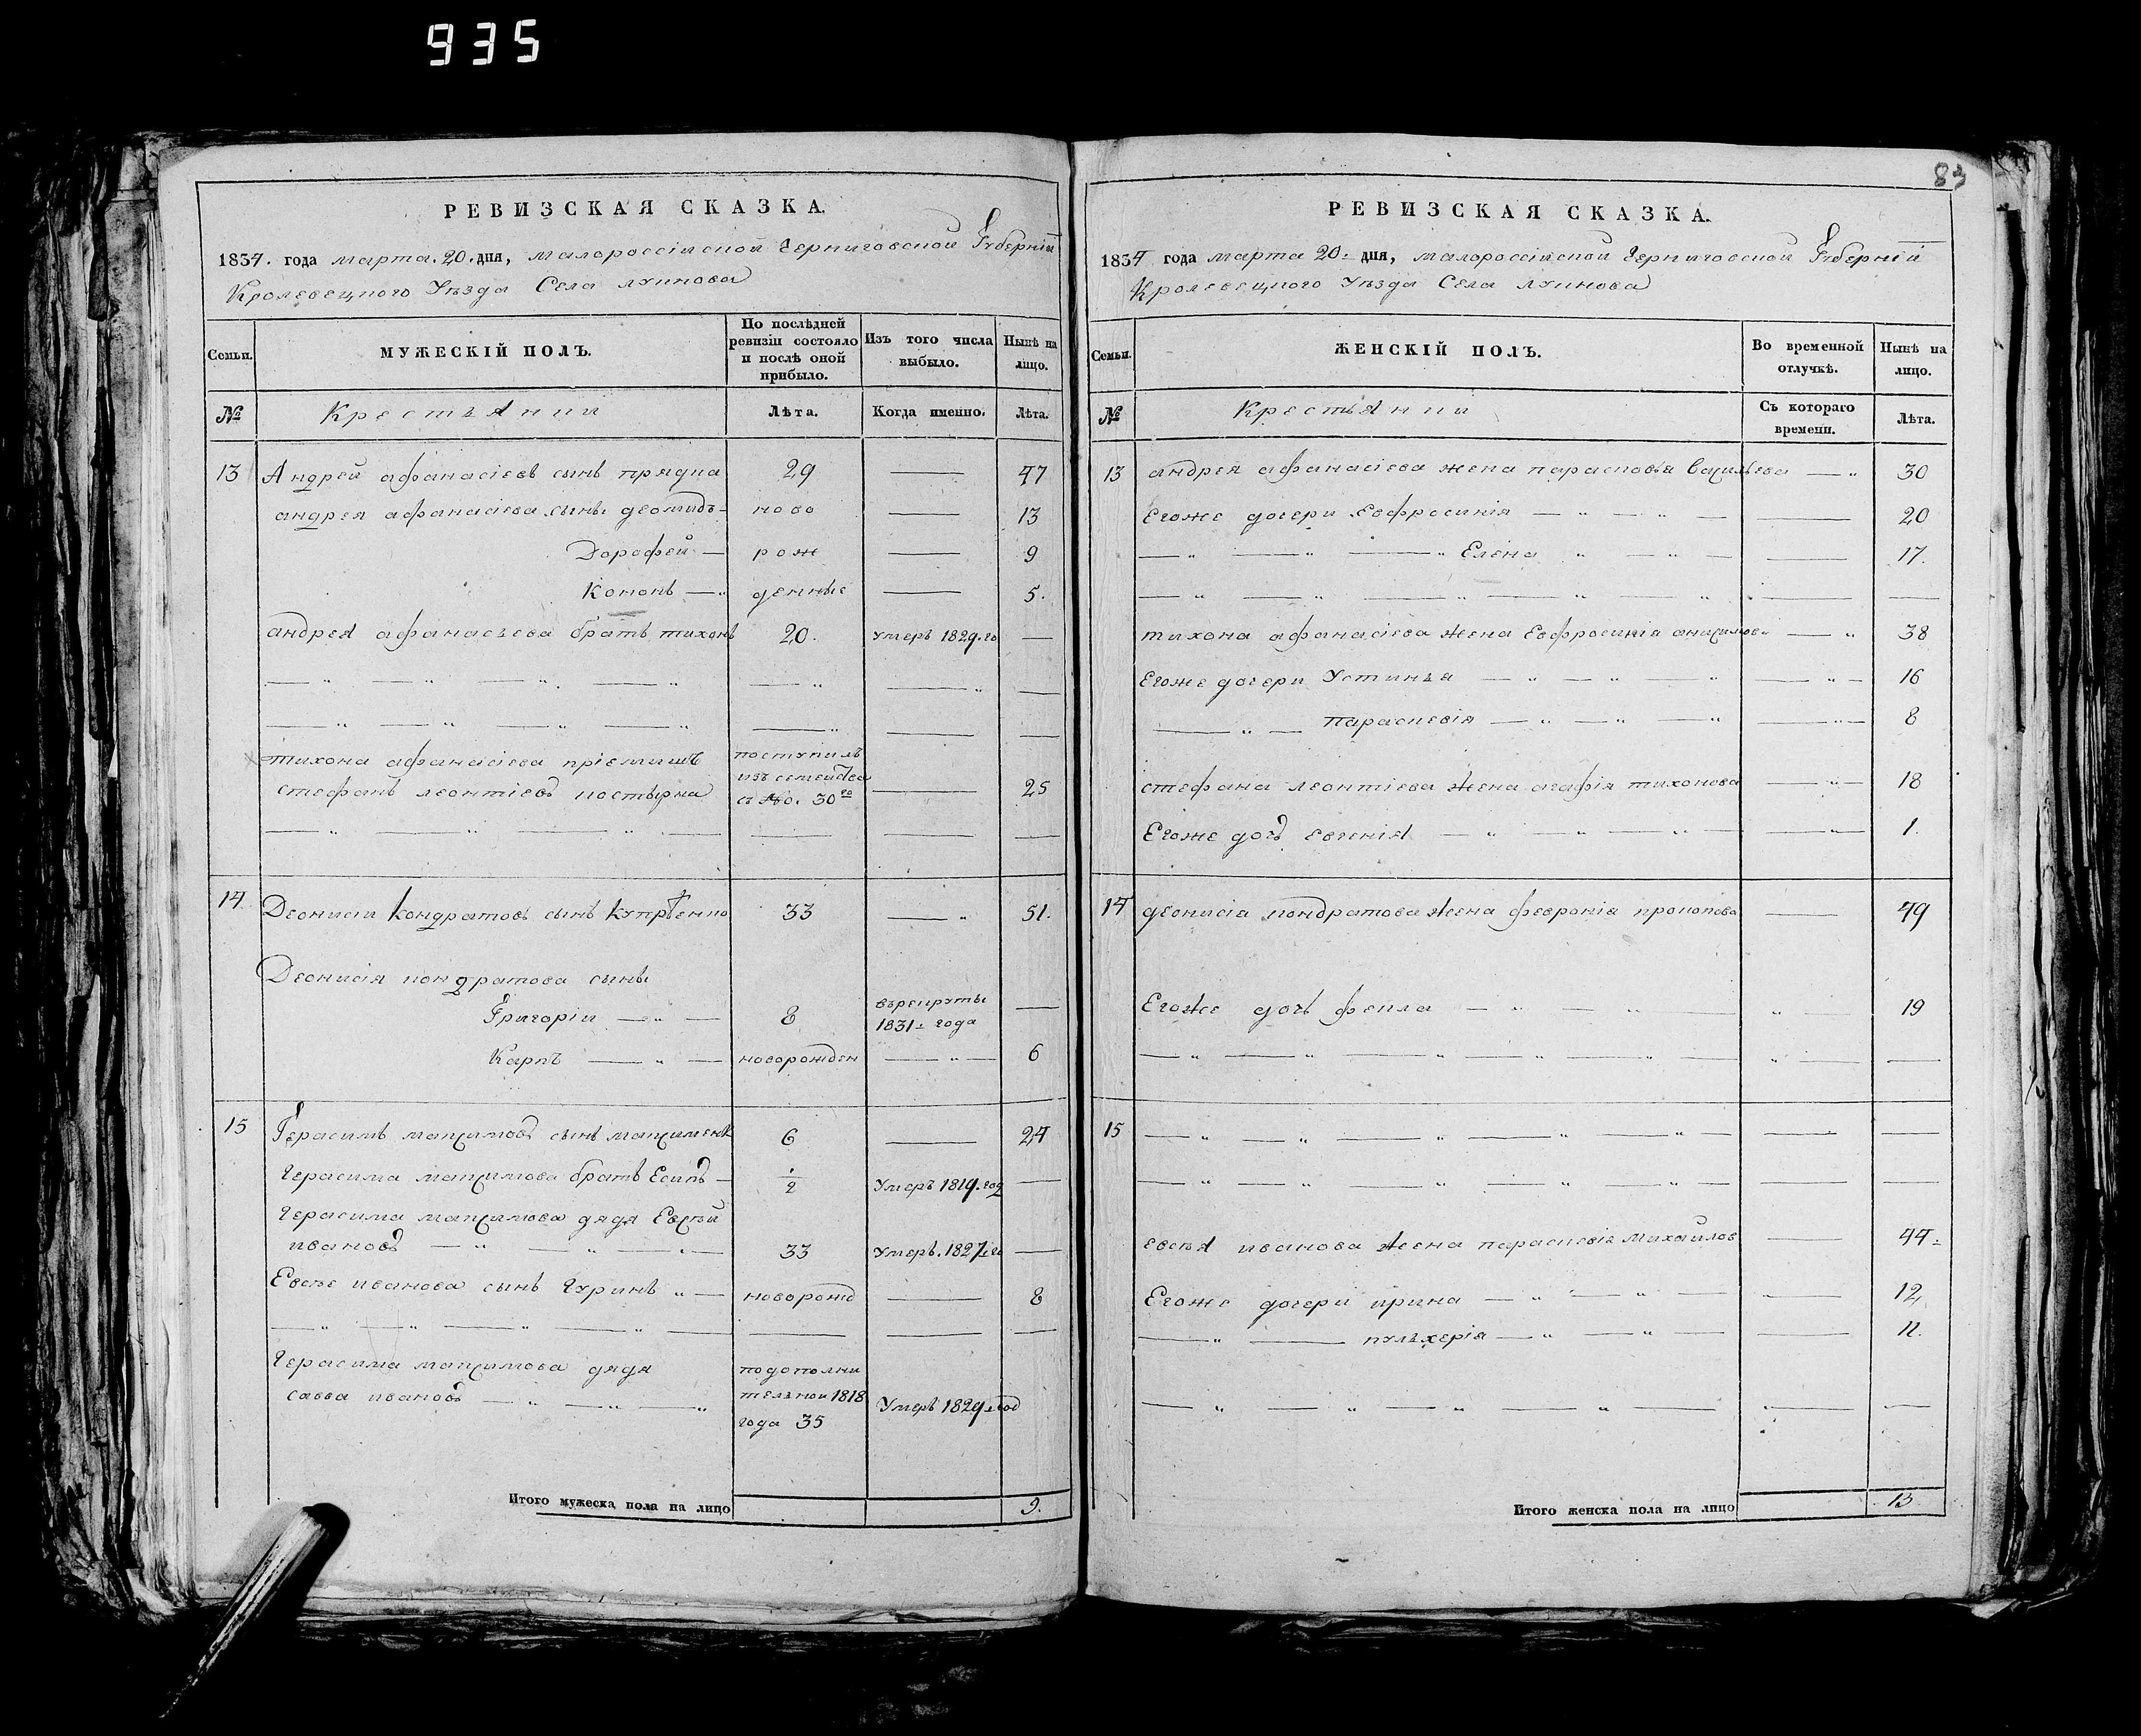 935
РЕВИЗСКАЯ СКАЗКА.
1834. года марта. 20. дня, малороссійской Черниговской Губерніи
Кролевецкого Уѣзда Села лукнова
Семьи.
МУЖЕСКІЙ ПОЛЪ.
По послѣдней ревизіи состояло и послѣ оной прибыло.
Изъ того числа выбыло.
Нынѣ на лицо.
№
Крестьянии
Лѣта.
Когда именно.
Лѣта.
13 Андрей афанасіевъ сынъ прядка 29 — 47
андрея афанасіева сыны деомидъ — ново — 13
Дорофей — рож — 9
Кононъ — денные — 5.
андрея афанасьева братъ тихонъ 20. умеръ 1829. го —
тихона афанасіева пріемышъ поступилъ
изъ семейства
стефанъ леонтіевъ костырка съ №о. 30го — 25
14 Деонисіи Кондратовъ сынъ Купрѣенко 33 — 51.
Деонисія кондратова сыны
Григоріи — 8 въ рекруты 1831 года —
Карпъ — новорожден — 6
15 Герасимъ максимовъ сынъ максименк 6 — 24
герасима максимова братъ Есипъ — 1/2 Умеръ 1819. год —
герасима максимова дядя Евсѣй
ивановъ — 33 Умеръ. 1827 го —
Евсѣе иванова сынъ гуринъ — новорожд — 8
герасима максимова дядя подополни
савва ивановъ — тельной 1818 Умеръ 1829 год
года 35
Итого мужеска пола на лицо 9.
83
РЕВИЗСКАЯ СКАЗКА.
1834 года марта 20. дня, малороссійской Черниговской Губерніи
Кролевецкого Уѣзда Села лукнова
Семьи.
ЖЕНСКІЙ ПОЛЪ.
Во временной отлучкѣ.
Нынѣ на лицо.
№
Крестьянки
Съ котораго времени.
Лѣта.
13 андрея афанасіева жена парасковья васильева — 30
Егоже дочери Евфросинія — 20
Елена — 17.
тихона афанасіева жена Евфросинія анисимов — 38
Егоже дочери Устинья — 16
параскевія — 8
стефана леонтіева жена агафія тихонова — 18
Егоже дочь евгенія — 1.
14 деонисіа кондратова жена февронія прокопова — 49
Егоже дочь фекла — 19
15
евсѣя иванова жена параскевія михайлов — 44
Егоже дочери ирина — 12,
пульхерія — 11.
Итого женска пола на лицо 13